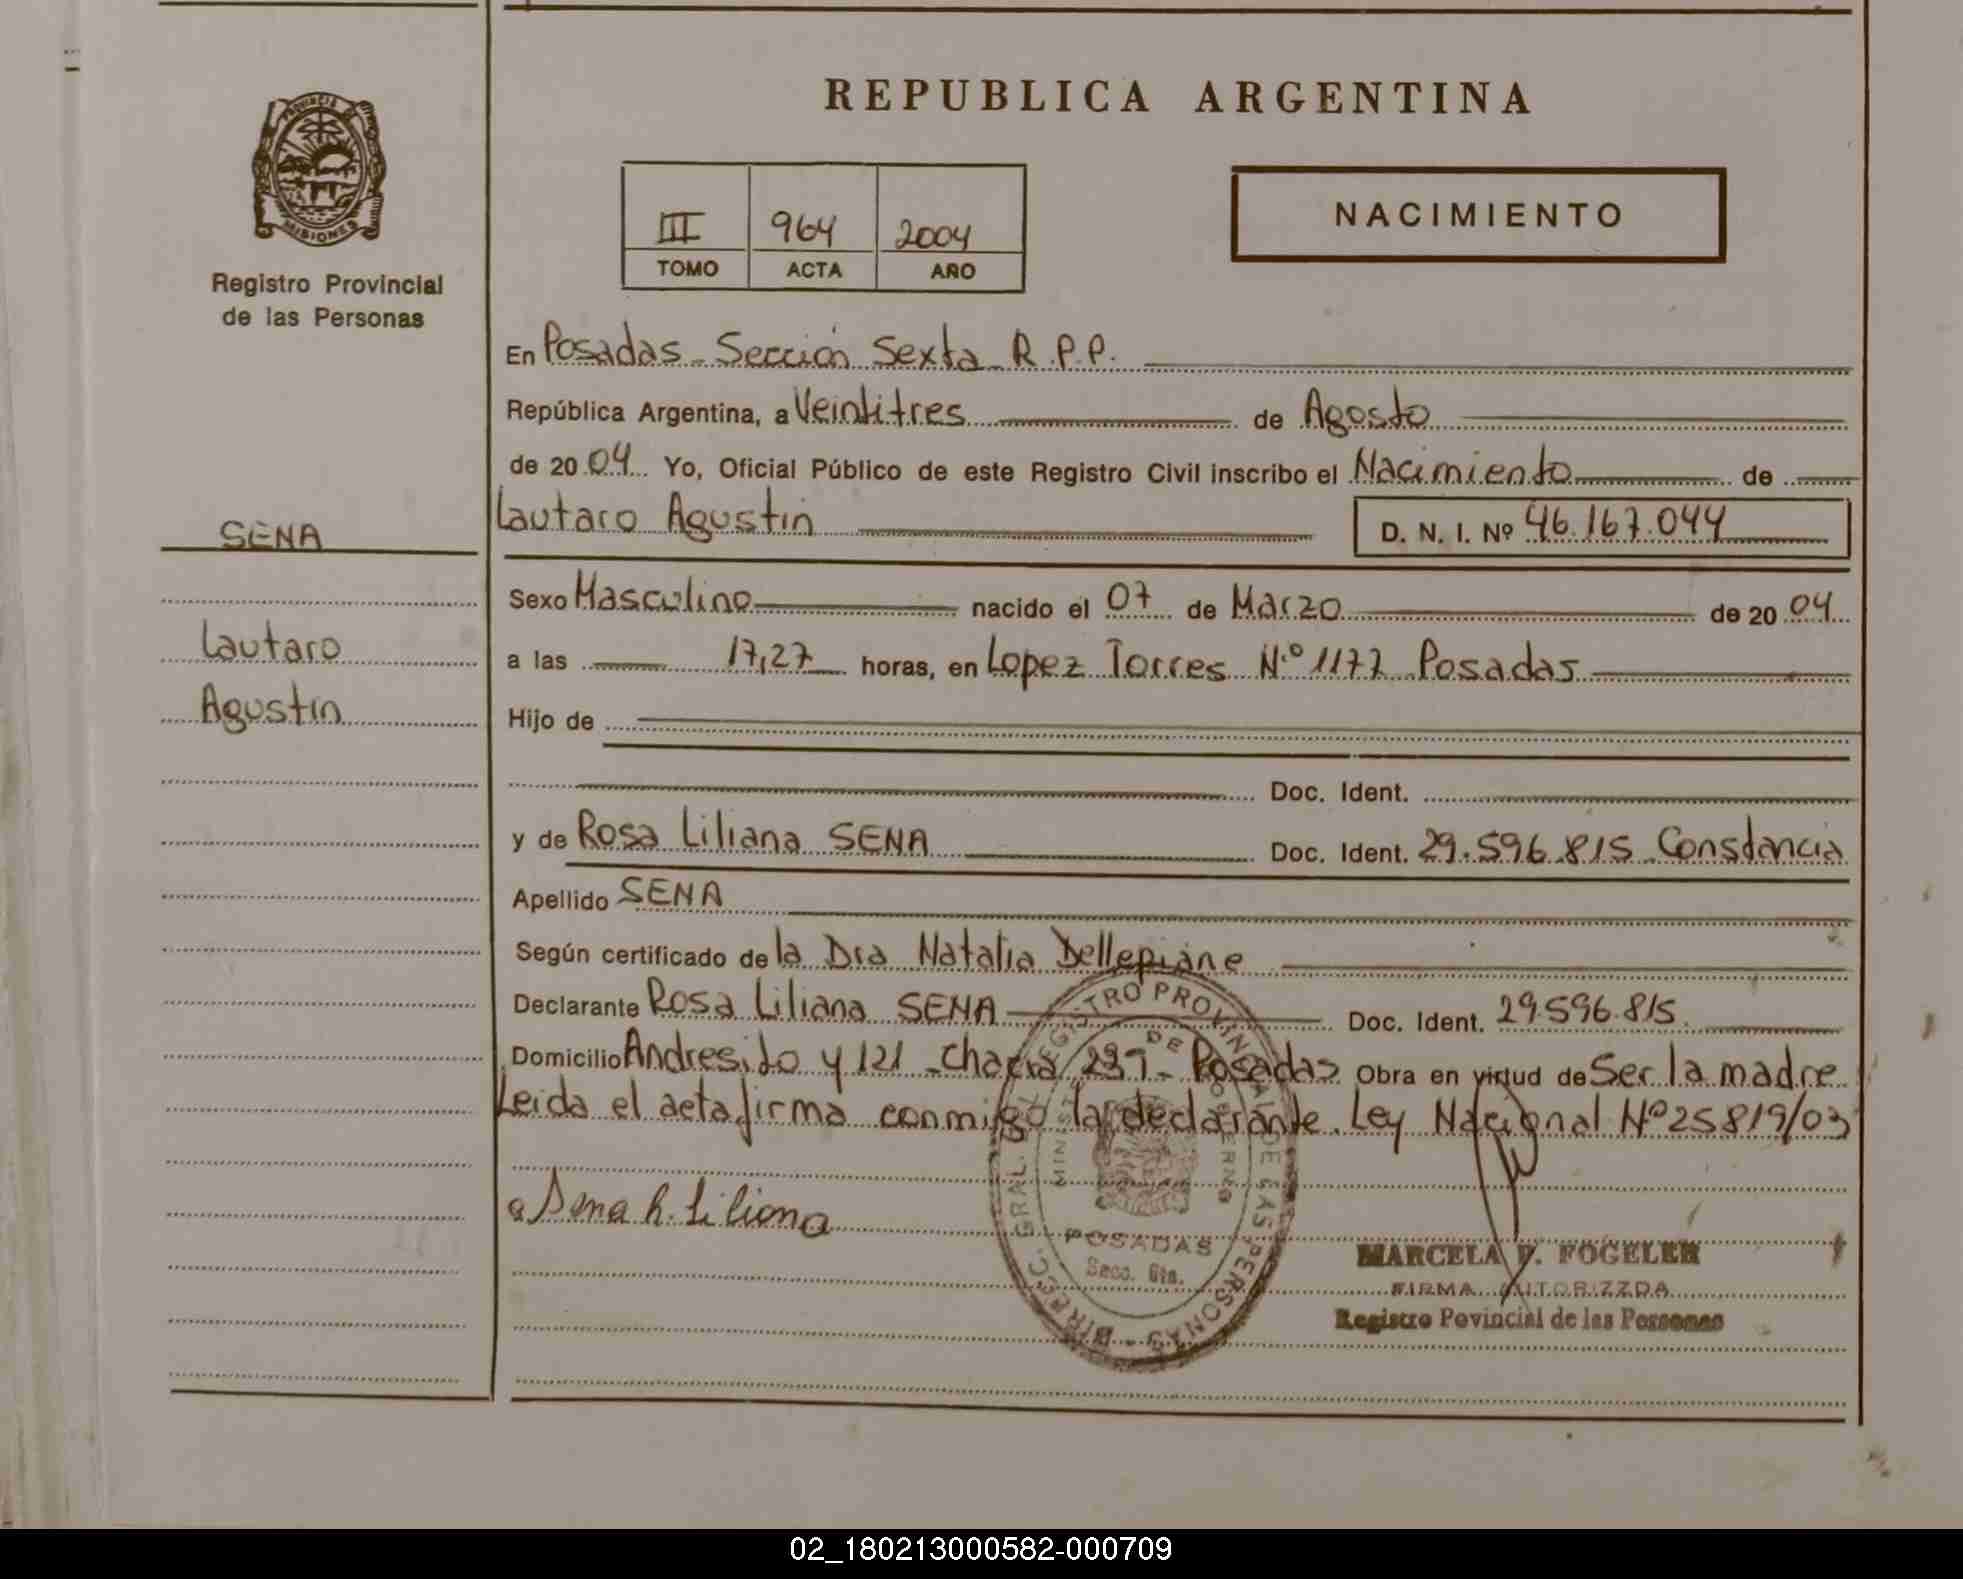 REPUBLICA ARGENTINA
PROVINCIA DE
MISIONES
Registro Provincial
de las Personas
III 964 2004
TOMO ACTA AÑO
NACIMIENTO
En Posadas - Sección Sexta R.P.P.
República Argentina, a Veintitres de Agosto
de 2004 Yo, Oficial Público de este Registro Civil inscribo el Nacimiento de
Lautaro Agustin D. N. I. Nº 46.167.044
SENA
Lautaro
Agustin
Sexo Masculino nacido el 07 de Marzo de 2004
a las 17,27 horas, en Lopez Torres N.º 1177 Posadas
Hijo de
Doc. Ident.
y de Rosa Liliana SENA Doc. Ident. 29.596.815 Constancia
Apellido SENA
Según certificado de la Dra Natalia Dellepiane
Declarante Rosa Liliana SENA Doc. Ident. 29.596.815
Domicilio Andresito y 121 - Chacra - Posadas Obra en virtud de Ser la madre
Leida el acta firma conmigo la declarante. Ley Nacional Nº 25819/03
Sena R. Liliana
DIREC. GRAL. DEL REGISTRO PROVINCIAL DE LAS PERSONAS
MINIST. DE GOBIERNO
POSADAS
Secc. 6ta.
MARCELA FOGELER
FIRMA AUTORIZZDA
Registro Povincial de las Personas
02_180213000582-000709